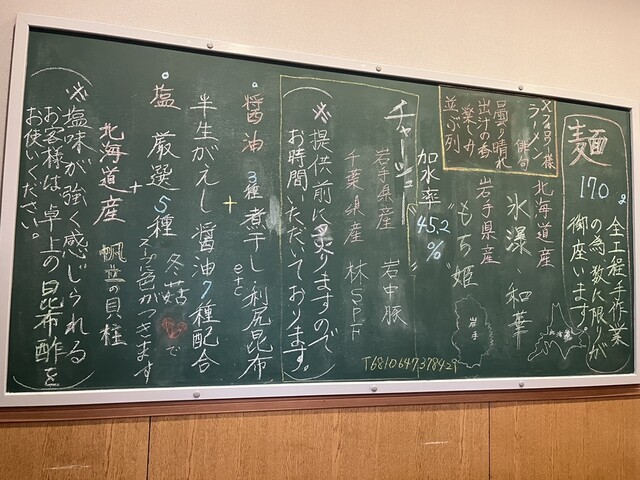 麺
170g
全工程手作業
の為数に限りが
御座います。
メンクロウ様
ラーメン
俳句
曇り晴れ
出汁の香
楽しみ
並ぶ列
北海道産
氷瀑、和華
岩手県産
"もち姫"
岩手
北海道
加水率
45.2
%
チャーシュー
岩手県産 岩中豚
千葉県産 林SPF
T6810647378429
(※提供前に炙りますので
お時間いただいております。)
醤油 3種煮干し、利尻昆布
etc
+
半生がえし 醤油7種配合
塩 厳選5種 冬菇で
スープに色がつきます
+
北海道産 帆立の貝柱
(※塩味が強く感じられる
お客様は、卓上の昆布酢を
お使いください。)